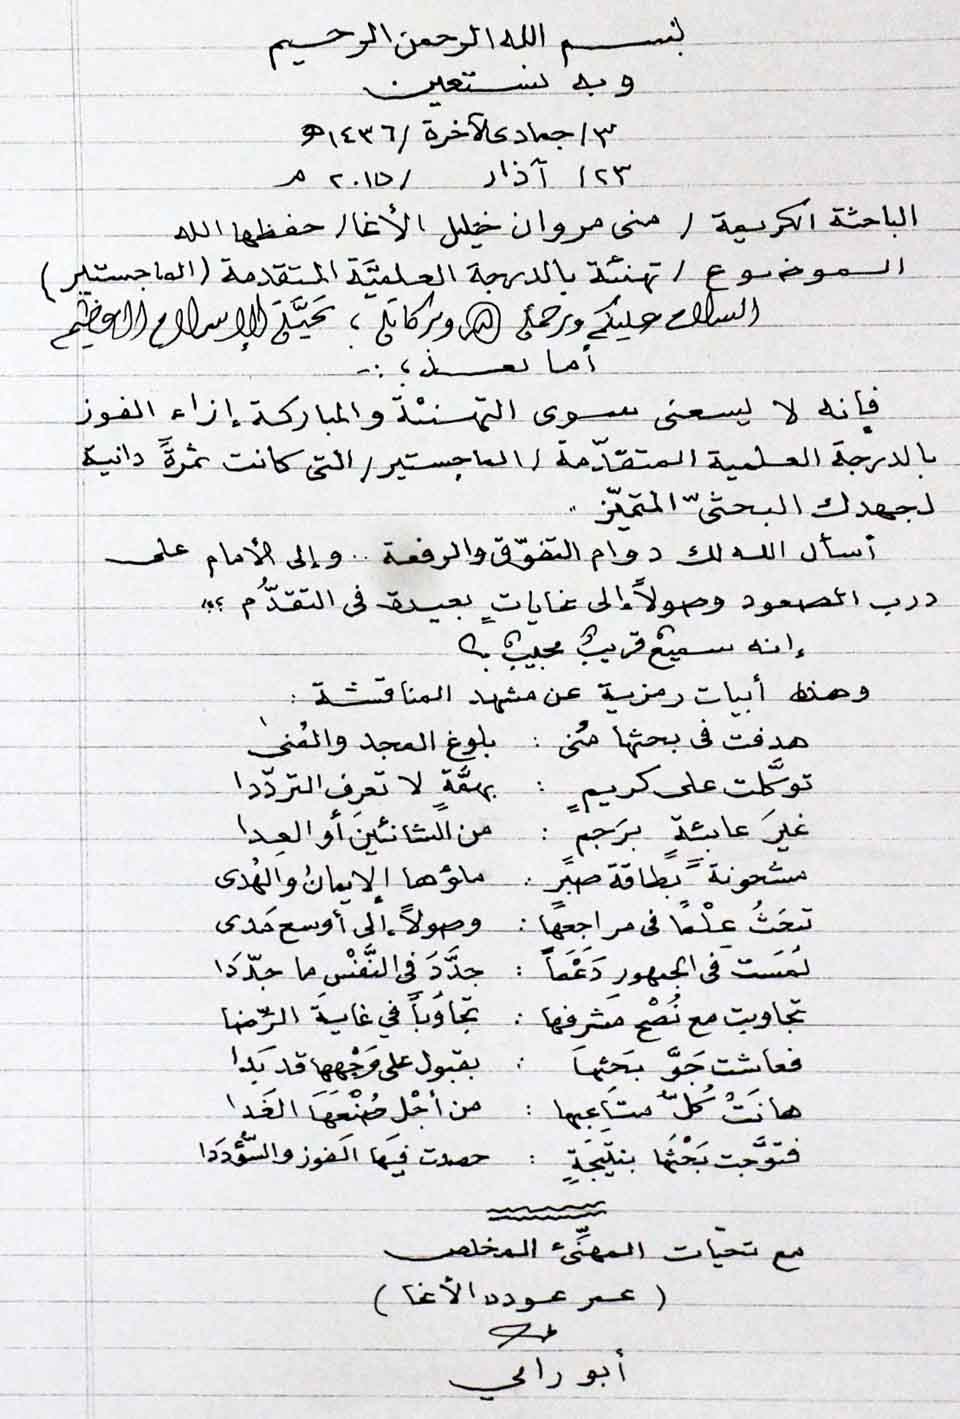 بسم الله الرحمن الرحيم
وبه نستعين
٣/ جمادى الآخرة /١٤٣٦هـ
٢٣/ آذار /٢٠١٥ م
الباحثة الكريمة / منى مروان خليل الأغا/ حفظها الله
الموضوع / تهنئة بالدرجة العلميَّة المتقدمة (الماجستير)
السلام عليكم ورحمة الله وبركاته ، تحيَّة الإسلام العظيم
أما بعد ، :-
فإنه لا يسعنى سوى التهنئة والمباركة إزاء الفوز
بالدرجة العلمية المتقدّمة /الماجستير/ التى كانت ثمرةً دانية
لجهدك البحثىّ المتميّز ..
أسأل الله لك دوام التفوّق والرفعة .. وإلى الأمام على
درب الصعود وصولاً إلى غاياتٍ بعيدة فى التقدُّم ،،
إنه سميعٌ قريبٌ مجيبٌ
وهذه أبيات رمزية عن مشهد المناقشة :
هدفت فى بحثها مُنى : بلوغ المجد والمُنى
توكَّلت على كريمٍ : بهمَّةٍ لا تعرف التردّدا
غيرَ عابئةٍ برَجمٍ : من الشانئينَ أو العِدا
مشحونةً بطاقة صبرٍ : ملؤها الإيمانُ والهُدى
تبحَثُ عِلْمًا فى مراجعها : وصولاً إلى أوسع مَدى
لمَسَت فى الجمهورِ دَعْماً : جدَّدَ فى النَّفْسِ ما جدّدَا
تجاوبت مع نُصْحِ مشرفها : تجاوُباً في غاية الرِّضا
فعاشت جَوَّ بَحْثِها : بقبول على وَجْهِها قد بَدا
هانَتْ كُلُّ متاعبها : من أجْل صُنْعَهَا الغَدا
فتوَّجت بَحْثَها بنتيجةٍ : حصدت فيها الفوز والسُّؤدَدَا
مع تحيّات المهنِّئ المخلص
( عمر عوده الأغا )
أبو رامي